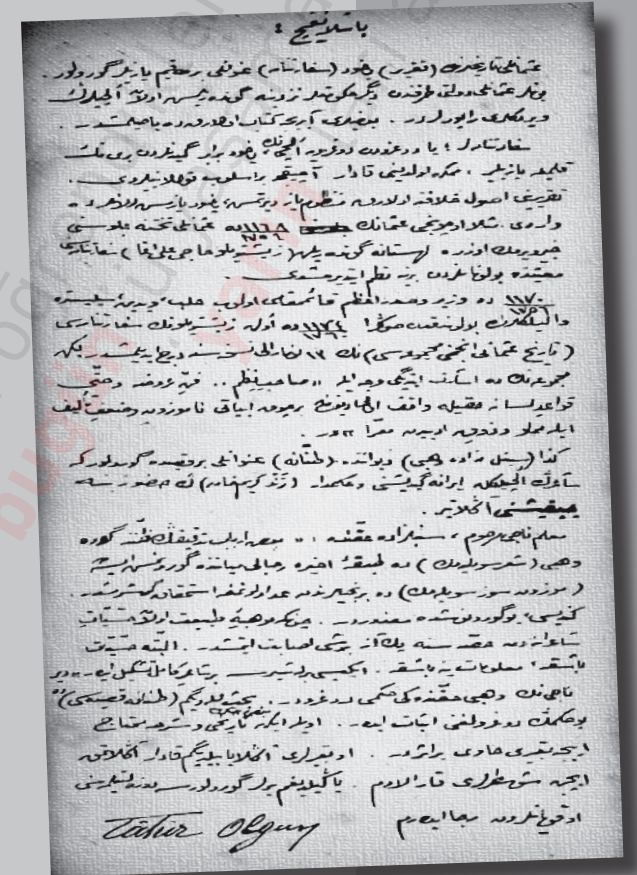 باشلانغیج :
عثمانلی تاریخنده (تقریر) یاخود (سفارتنامه) عنوانلی بر طاقیم یازیلر گورولور .
بونلر عثمانلی دولتی طرفندن دیگر حکومتلر نزدینه گوندریلمش اولان ایلچیلرك
ویردکلری راپورلردر . بعضیلری آیریجه کتاب اولارق ده باصیلمشدر .
سفارتنامه لر ؛ یا دوغرودن دوغرویه ایلچینك ، یاخود برابر گیدنلردن بری نك
قلمیله یازیلیر ، ممکن اولدیغی قادار آچیق بر اسلوب قوللانیلیردی .
تقریرینی اصول خلافنه اولارق منظوم یازدیرتمش ، یاخود یازمش اولانلر ده
واردی . مثلا اوچنجی عثمانك ١١٦٨ ده عثمانلی تختنه جلوسنی
خبر ویرمك اوزره لهستانه گوندریلن (زیشتویلی حاجی علی آغا) سفارتلری
حقنده بولونانلردن برینه نظم ایتدیرمشدی .
١١٧٠ ده وزیر و صدر اعظم قائمقامی اولوب حلب ، ویدین ، سلیستره
والیلکلرنده بولوندقدن صوڭرا ١١٧٤ ده اولن زیشتویلونك سفارتنامه سی
(تاریخ عثمانی انجمنی مجموعه سی) نك ١٣ نومرولی نسخه سنه درج ایدیلمشدر . لکن
مجموعه نك ده اشارت ایتدیگی وجهله « صاحب نظم .. فن عروضه و حتی
قواعد لسانه حقیله واقف اولمادیغی برچوق ابیاتی ناموزون و ضعف تألیف
ایله مملو و ذوق ادبیدن معرا » در .
کذا (سنبل زاده وهبی) دیواننده (طنانه) عنوانلی بر قصیده گورولور که
شاعرك ایلچیلکله ایرانه گیدیشنی و حکمدار (زند کریم خان) ك حضورینه
چیقیشنی آڭلاتیر .
معلم ناجی مرحوم ، سنبلزاده حقنده : « بعض ارباب تدقیقك ظننه گوره
وهبی (شعر سویله مك) ده طبقۀ اخیره رجالی میاننده گورونمش ایسه
(موزون سوز سویله مك) ده برنجیلردن عد اولونمغه استحقاق گوسترمشدر .
کندیسی بو گوروشده معذوردر . چونکه موهبۀ طبیعت اولان حسیات
شاعرانه دن حصه سنه پك آز شی اصابت ایتمشدر . البته حسیات
باشقه ، معلومات ینه باشقه . ایکیسی برلشیرسه بر شاعر کامل تشکل ایدر » دیر
ناجی نك وهبی حقنده کی حکمی دوغرودر . بحث ایتدیگم (طنانه قصیده سی) ده
بو حکمك دوغرولغنی اثبات ایدر . اویله ایکن تاریخی و شرحه محتاج
ایجه تعبیری حاوی بر اثردر . او تعبیرلری آڭلایابیلدیگم قادار آڭلاتمق
ایچین شو سطرلری قارالادم . یاڭیلدیغم یرلر گورولورسه دوزلتیلمه سنی
اوقویانلردن رجا ایده رم
Tâhir Olgun
bugün
yarın